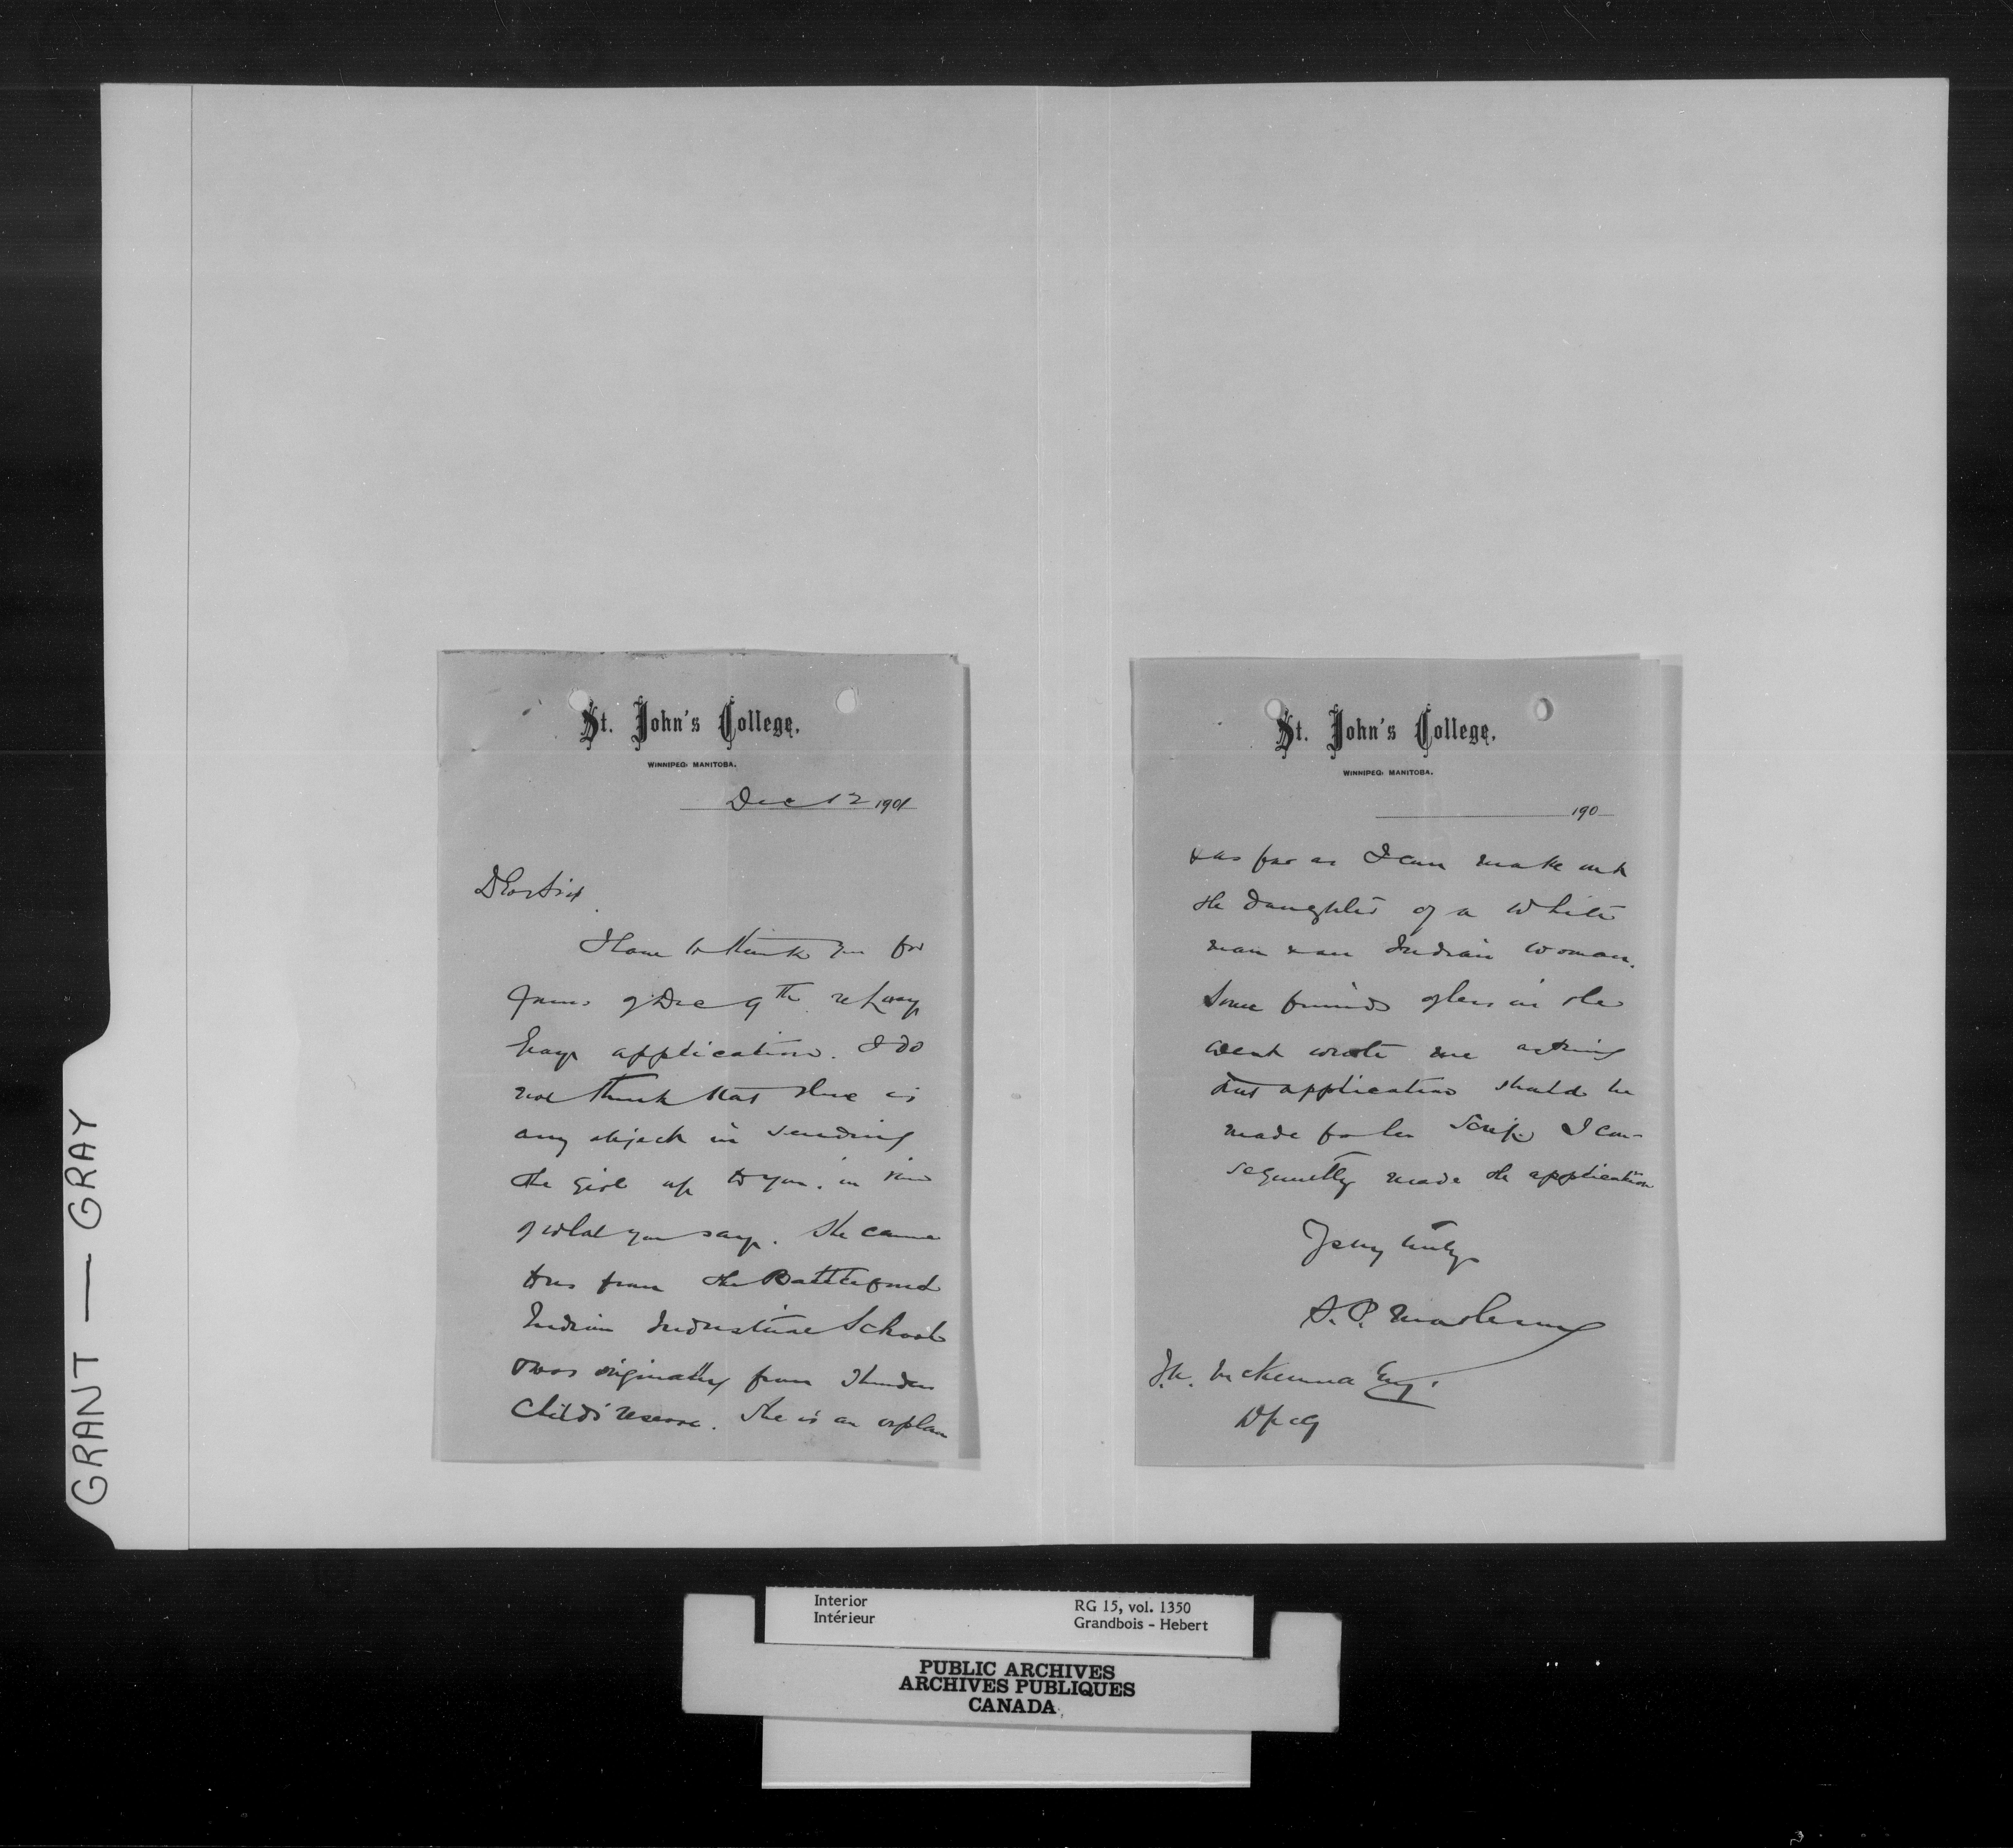 GRANT — GRAY
St. John's College,
WINNIPEG, MANITOBA.
Dec 12 1901
Dear Sir
I have to thank you for
yours of Dec 9th re Lucy
Grays application. I do
not think that there is
any object in sending
the girl up to you, in view
of what you say. She came
to us from the Battleford
Indian Industrial School
& was originally from Thunder
Child's reserve. She is an orphan
St. John's College,
WINNIPEG, MANITOBA.
190
& as far as I can make out
the daughter of a white
man & an Indian woman.
Some friends of hers in the
West wrote me asking
that application should be
made for her Scrip. I con-
sequently made the application
Very truly
S. P. Matheson
J.A. McKenna Esq.
Wpeg
Interior
Intérieur
RG 15, vol. 1350
Grandbois - Hebert
PUBLIC ARCHIVES
ARCHIVES PUBLIQUES
CANADA